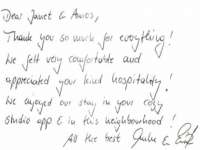 Dear Janet & Amos,
Thank you so much for everything!
We felt very comfortable and
appreciated your kind hospitality!
We enjoyed our stay in your cozy
studio app & in this neighbourhood!
All the best &